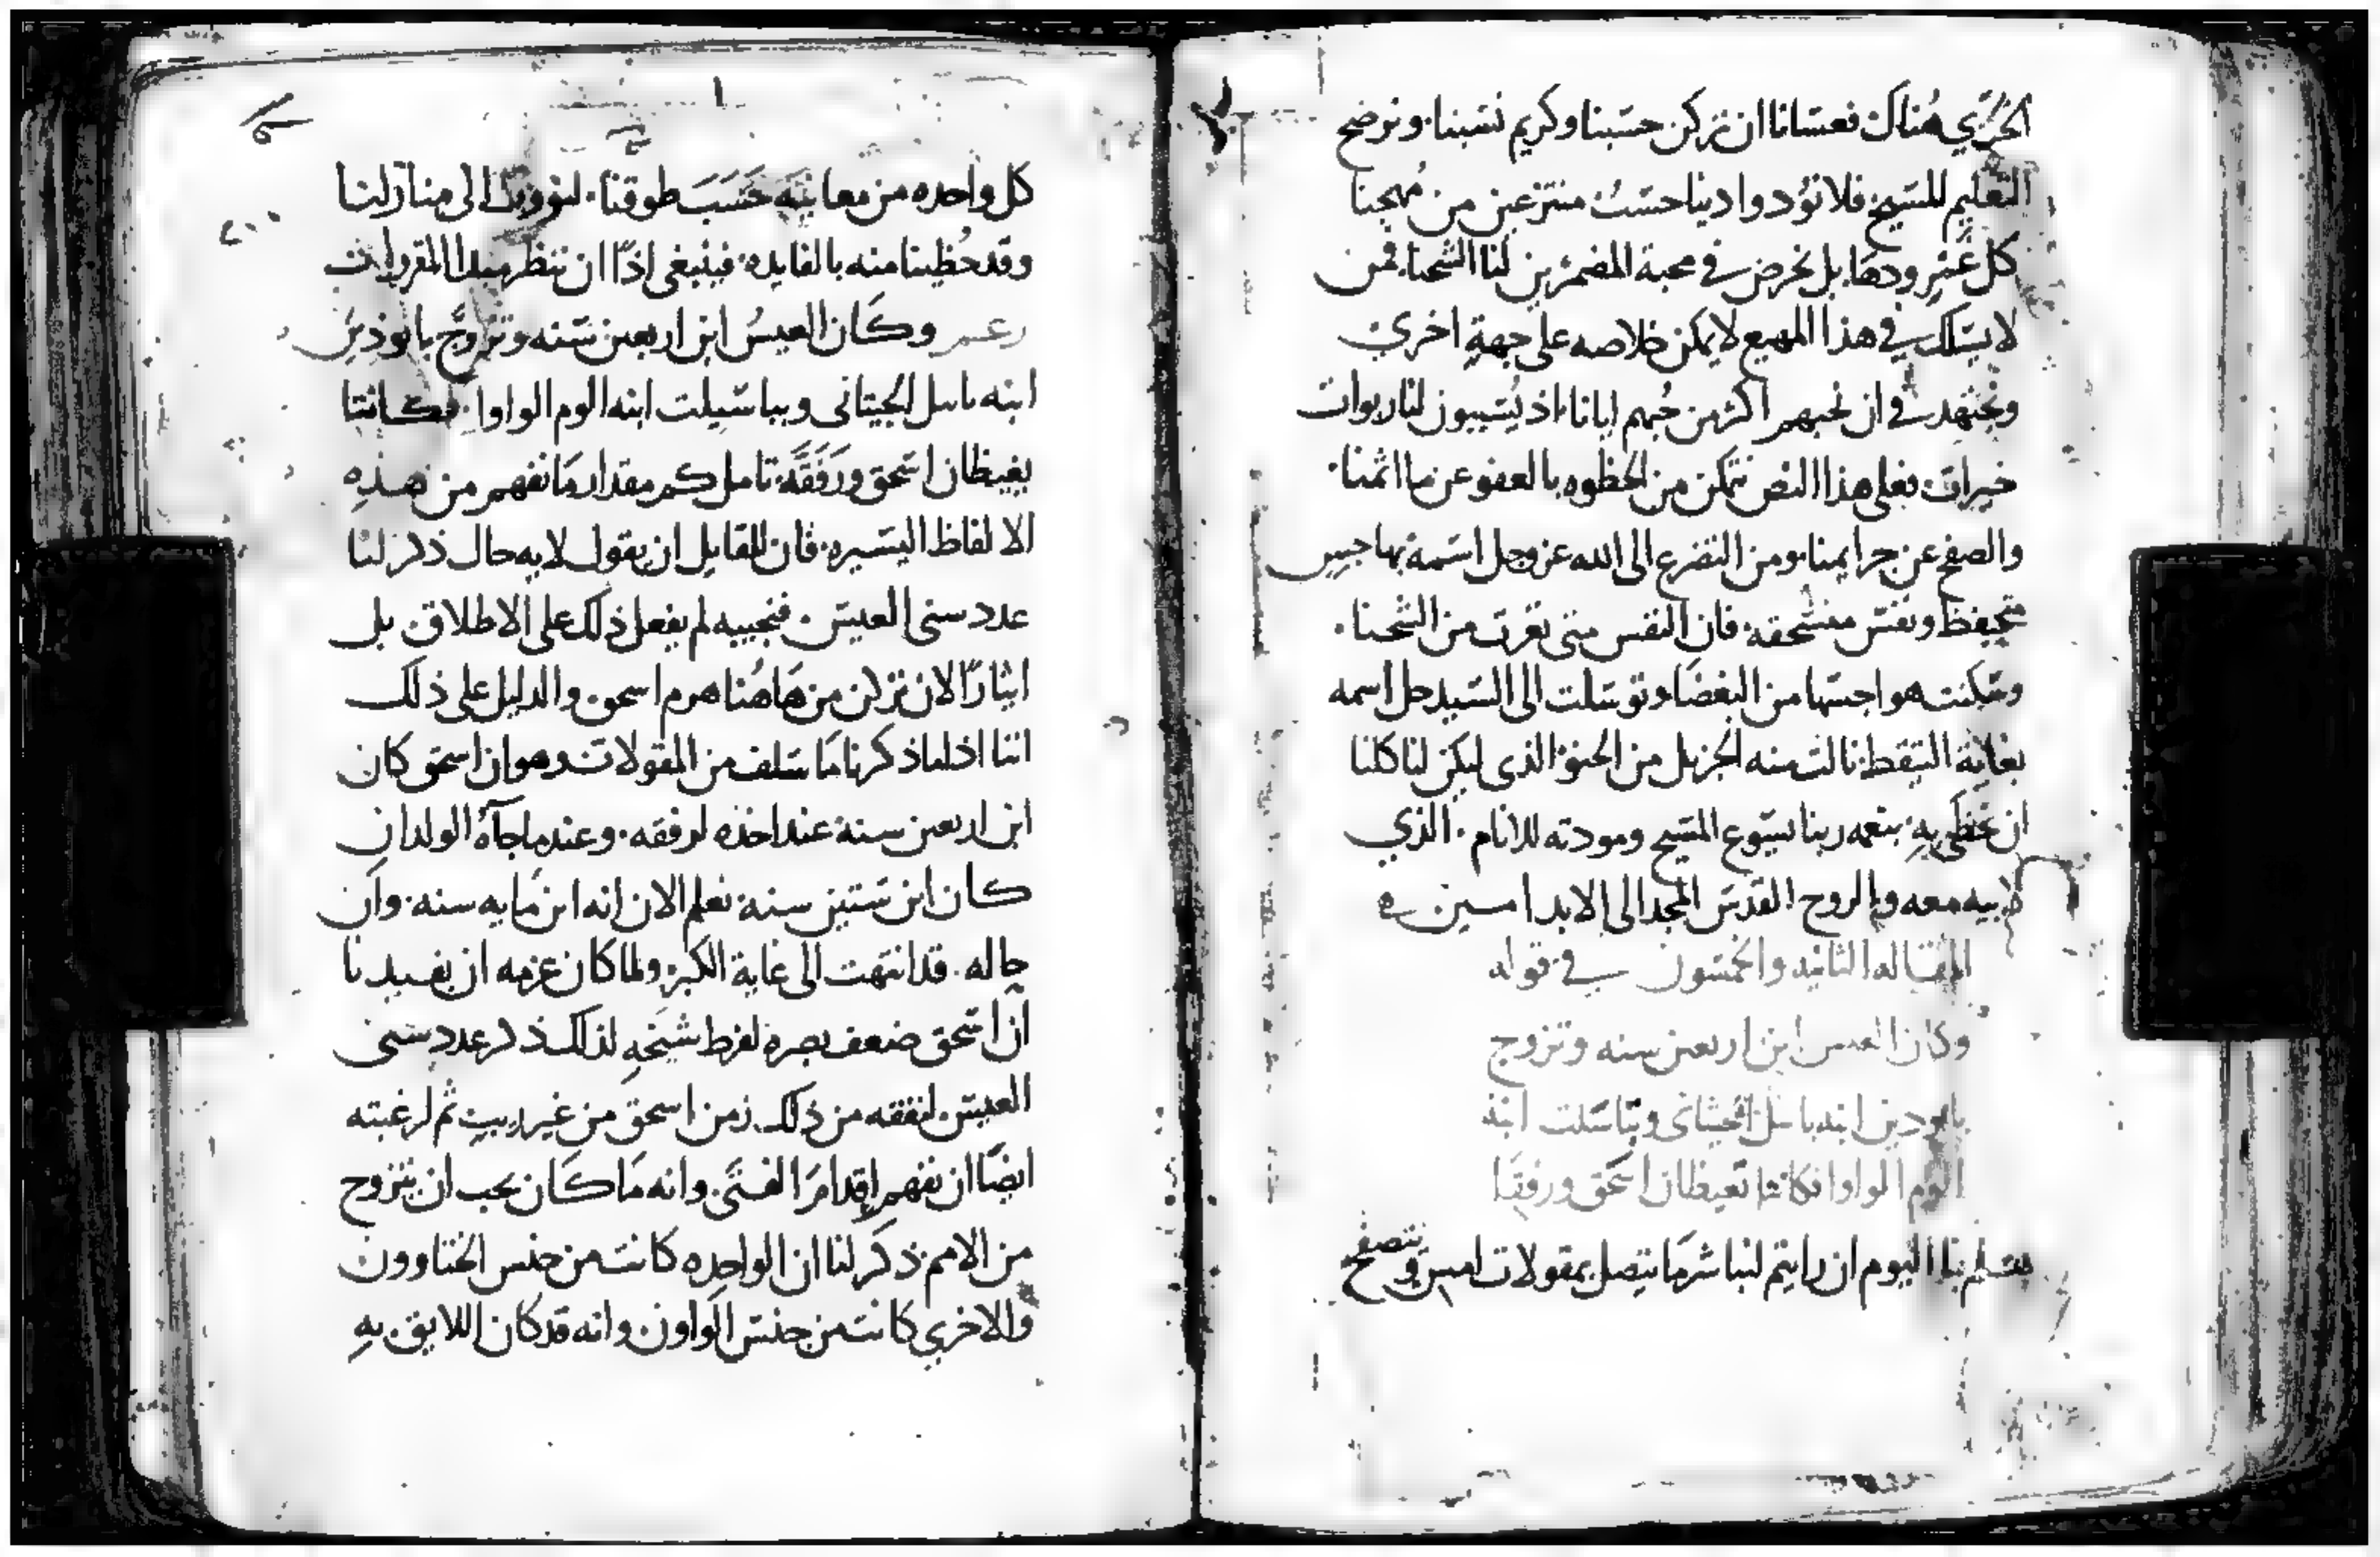 الخزي هناك فعسانا ان نزكن حسبنا وكريم نسبنا. ونوضح
التعليم للمسيح فلا نؤد وادينا حسب منتزعين من مهجنا
كل غمر ودها بل نحرض في محبة المضمرين لنا الشحنا. فمن
لا يسلك في هذا المهيع لا يمكن خلاصه على جهة اخري
ونجتهد في ان نحبهم اكثر من حبهم ايانا. اذ يسببون لنا ربوات
خيرات فعلي هذا النص نتمكن من الحظوه بالعفو عن ما اثمنا.
والصفح عن جرايمنا ومن التضرع الى الله عز وجل اسمه بهاجس
متحفظ ونفس منسحقه. فان النفس متى تعرت من الشحنا.
وسكنت هواجسها من البغضا وتوسلت الى السيد جل اسمه
بغاية التيقظ نالت منه الجزيل من الحنو الذى ليكن لنا كلنا
ان نحظى به بنعمه ربنا يسوع المسيح ومودته للانام. الذي
لابيه معه والروح القدس المجد الى الابد امين
المقاله الثانيه والخمسون في قوله
وكان العيس ابن اربعين سنه وتزوج
باودين ابنه بائل الحيثانى وبباسلت ابنة
الوم الواوا فكانتا تغيظان اسحق ورفقا
بنا اليوم ان رايتم لنباشر ما يتصل بمقولات امس ونتصفح
كل واحده من معانيه حسب طوقنا. لنؤوب الى منازلنا
وقد حظينا منه بالفايده. فينبغى اذًا ان ننظر مبدا المقروات
زعم وكان العيس ابن اربعين سنه وتزوج بايوذين
ابنه بائل الجيتانى وبباسيلت ابنه الوم الواوا. فكانتا
يغيظان اسحق ورفقة. تامل كم مقدار ما نفهم من هذه
الالفاظ اليسيره. فان للقايل ان يقول لايه حال ذكر لنا
عدد سنى العيس. فنجيبه لم يفعل ذلك على الاطلاق بل
ايثارًا لان نزكن من هاهنا هرم اسحق. والدليل على ذلك
اننا اذ لماذكرنا ما سلف من المقولات وهو ان اسحق كان
ابن اربعين سنة عند اخذه لرفقه. وعند ما جآه الولدان
كان ابن ستين سنة. نعلم الان انه ابن مايه سنه. وان
حاله. قد انتهت الى غاية الكبر ولما كان عزمه ان يفيدنا
ان اسحق ضعف بصره لفرط شيخه لذلك ذكر عدد سنى
العيس. لنفقه من ذلك زمن اسحق من غير ريب ثم لرغبته
ايضًا ان نفهم اقدام الفتى. وانه ما كان يجب ان يتزوج
من الامم ذكر لنا ان الواحده كانت من جنس الختاوون
والاخري كانت من جنس الواون وانه قد كان اللايق به